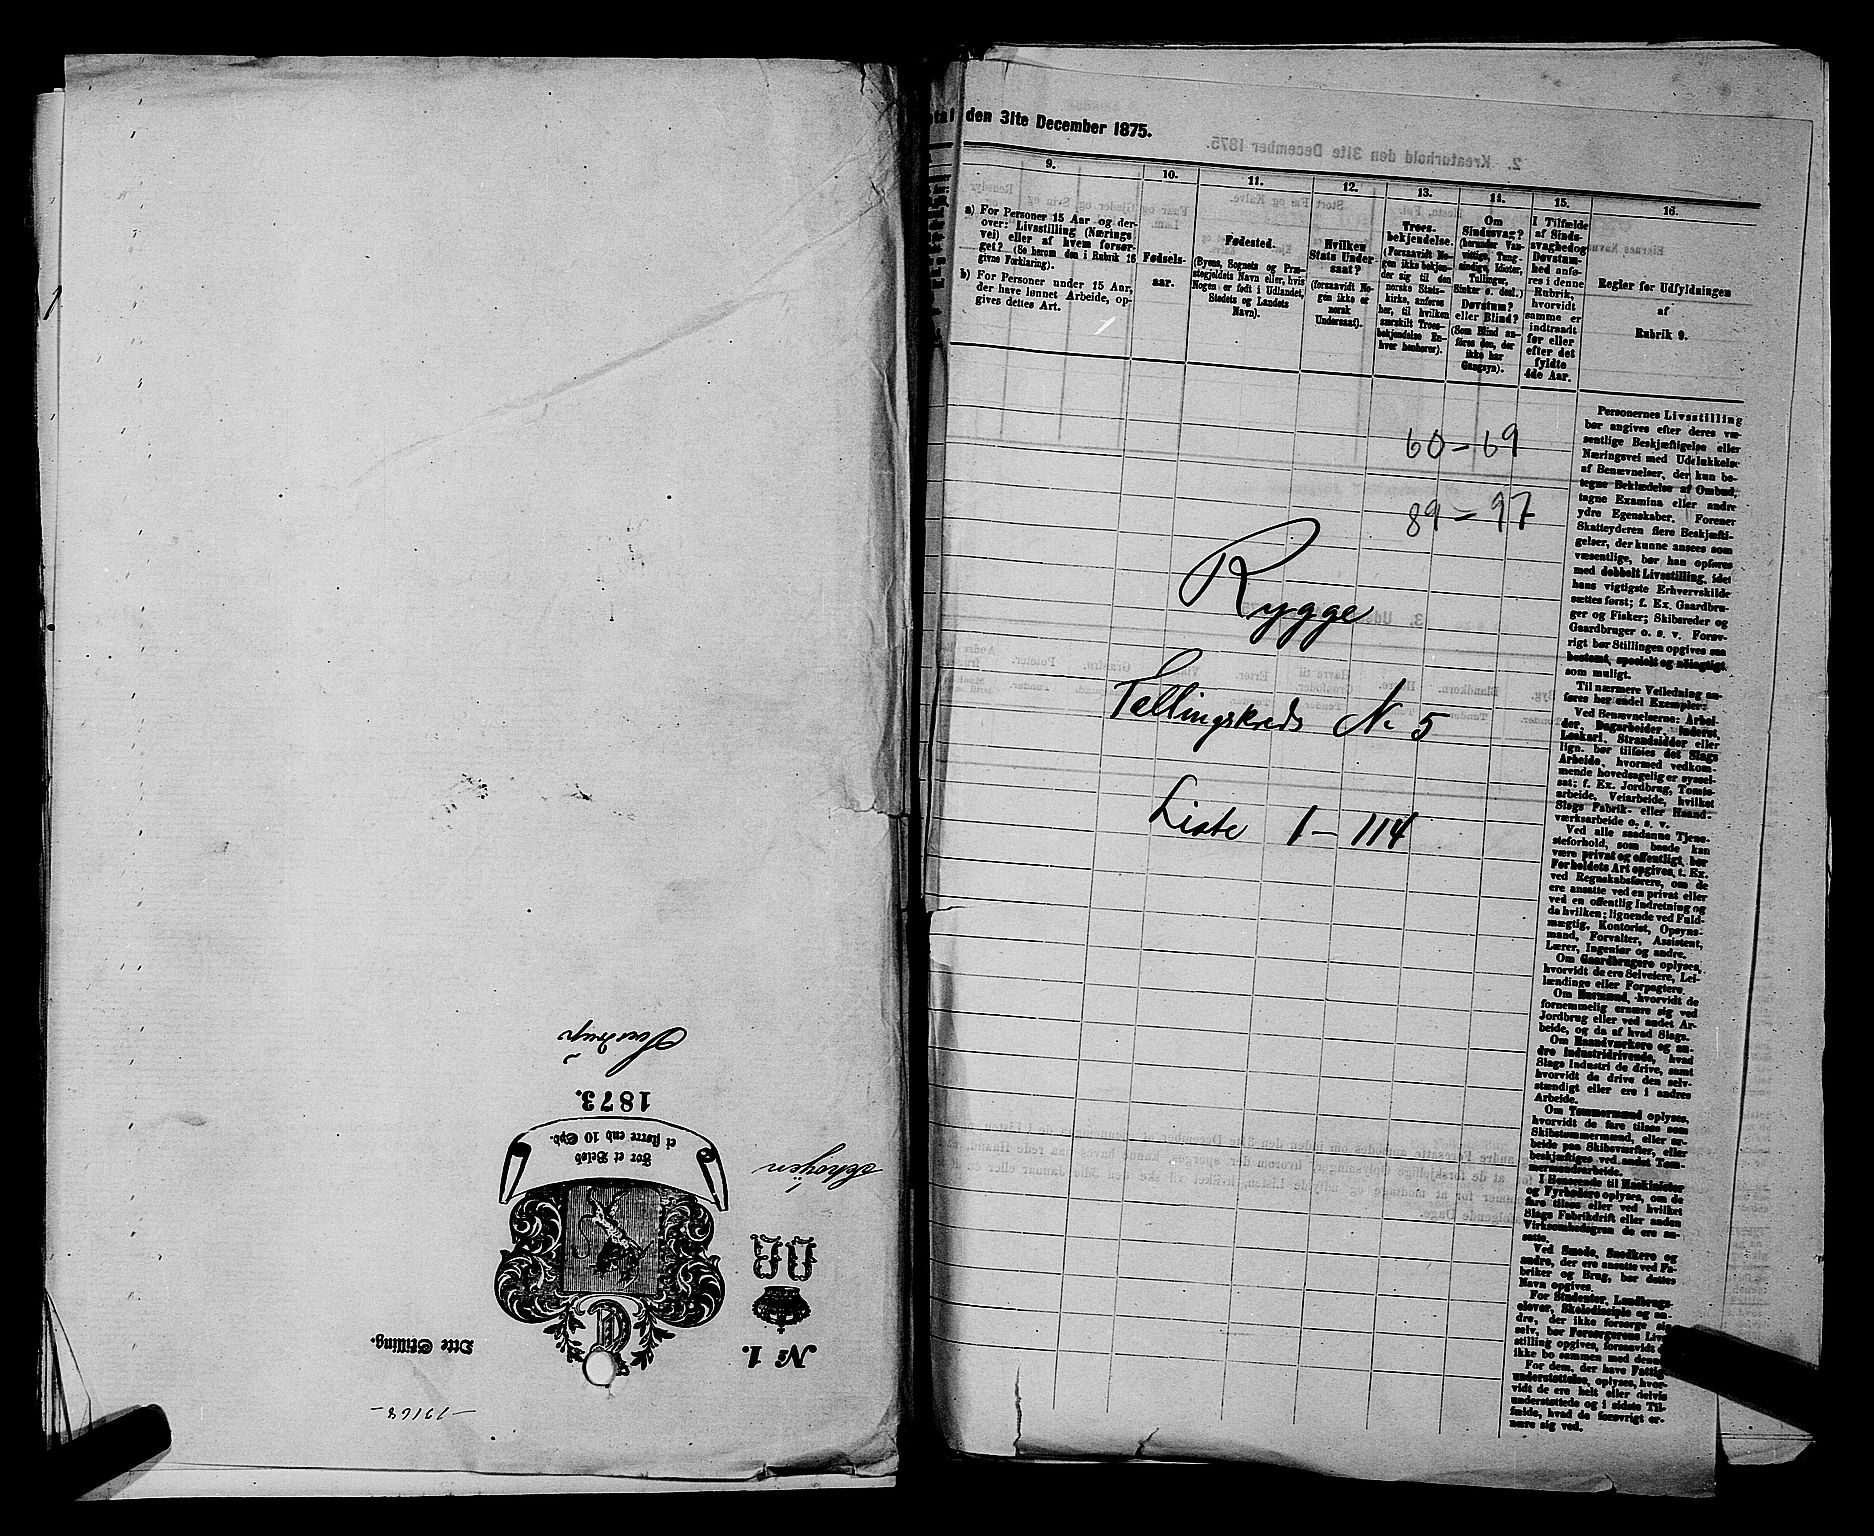 Svedrup
1873.
For et Beløb
ei større end 10 Spd.
№ 1.
Otte Skilling.
den 31te December 1875.
9.
a) For Personer 15 Aar og der-
over: Livsstilling (Nærings
vei) eller af hvem forsør-
get? (Se herom den i Rubrik 16
givne Forklaring).
b) For Personer under 15 Aar,
der have lønnet Arbeide, op-
gives dettes Art.
10.
Fødsels-
aar.
11.
Fødested.
(Byens, Sognets og Præ-
stegjeldets Navn eller, hvis
Nogen er født i Udlandet,
Stedets og Landets
Navn).
12.
Hvilken
Stats Under-
saat?
(forsaavidt No-
gen ikke er
norsk
Undersaat).
13.
Troes-
bekjendelse.
(Forsaavidt No-
gen ikke bekjen-
der sig til den
norske Stats-
kirke, anføres
her, til hvilken
særskilt Troes-
bekjendelse En-
hver henhører).
14.
Om
Sindssvag?
(herunder Van-
vittige, Tung-
sindige, Idioter,
Tullinger,
Sinker o. desl.)
Døvstum?
eller Blind?
(Som Blind an-
føres den, der
ikke har
Gangsyn).
15.
I Tilfælde
af Sinds-
svaghed og
Døvstum-
hed anfø-
res i denne
Rubrik,
hvorvidt
samme er
indtraadt
før eller
efter det
fyldte
4de Aar.
16.
Regler for Udfyldningen
af
Rubrik 9.
60 - 69
89 - 97
Rygge
Tellingskreds № 5
Liste 1 - 114
Personernes Livsstilling
bør angives efter deres væ-
sentlige Beskjæftigelse eller
Næringsvei med Udelukkelse
af Benævnelser, der kun be-
tegne Beklædelse af Ombud,
tagne Examina eller andre
ydre Egenskaber. Forener
Skatteyderen flere Beskjæfti-
gelser, der kunne ansees som
væsentlige, bør han opføres
med dobbelt Livsstilling, idet
hans vigtigste Erhvervskilde
sættes først; f. Ex. Gaardbru-
ger og Fisker; Skibsreder og
Gaardbruger o. s. v. Forøv-
rigt bør Stillingen opgives saa
bestemt, specielt og nøiagtigt
som muligt.
Til nærmere Veiledning an-
føres her endel Exempler:
Ved Benævnelserne: Arbei-
der, Dagarbeider, Inderst,
Løskarl, Strandsidder eller
lign. bør tilføies det Slags
Arbeide, hvormed vedkom-
mende hovedsagelig er syssel-
sat; f. Ex. Jordbrug, Tomte-
arbeide, Veiarbeide, hvilket
Slags Fabrik- eller Haand-
værksarbeide o. s. v.
Ved alle saadanne Tjene-
steforhold, som baade kan
være privat og offentligt, bør
Forholdets Art opgives, t. Ex.
ved Regnskabsførere, om de
ere ansatte ved en privat eller
ved en offentlig Indretning og
da hvilken; lignende ved Fuld-
mægtig, Kontorist, Opsyns-
mand, Forvalter, Assistent,
Lærer, Ingeniør og andre.
Om Gaardbrugere oplyses,
hvorvidt de ere Selveiere, Lei-
lændinge eller Forpagtere.
Om Husmænd, hvorvidt de
fornemmelig ernære sig ved
Jordbrug eller ved andet Ar-
beide, og da af hvad Slags.
Om Haandværkere og an-
dre Industridrivende, hvad
Slags Industri de drive, samt
hvorvidt de drive den selv-
stændigt eller ere i andres
Arbeide.
Om Tømmermænd oplyses,
hvorvidt de fare tilsøs som
Skibstømmermænd, eller ar-
beide paa Skibsværfter, eller
beskjæftiges ved andet Tøm-
mermandsarbeide.
I Henseende til Maskinister
og Fyrbødere oplyses, om de
fare tilsøs eller ved hvilket
Slags Fabrikdrift eller anden
Virksomhedsgren de ere an-
satte.
Ved Smede, Snedkere og
andre, der ere ansatte ved Fa-
briker og Brug, bør dettes
Navn opgives.
For Studenter, Landbrugs-
elever, Skoledisciple og an-
dre, der ikke forsørge sig
selv, bør Forsørgerens Livs-
stilling opgives, forsaavidt de
ikke bo sammen med denne.
For dem, der have Fattig-
understøttelse, oplyses, hvor-
vidt de ere helt eller delvis
understøttede og i sidste Til-
fælde, hvad de forøvrigt er-
nære sig ved.